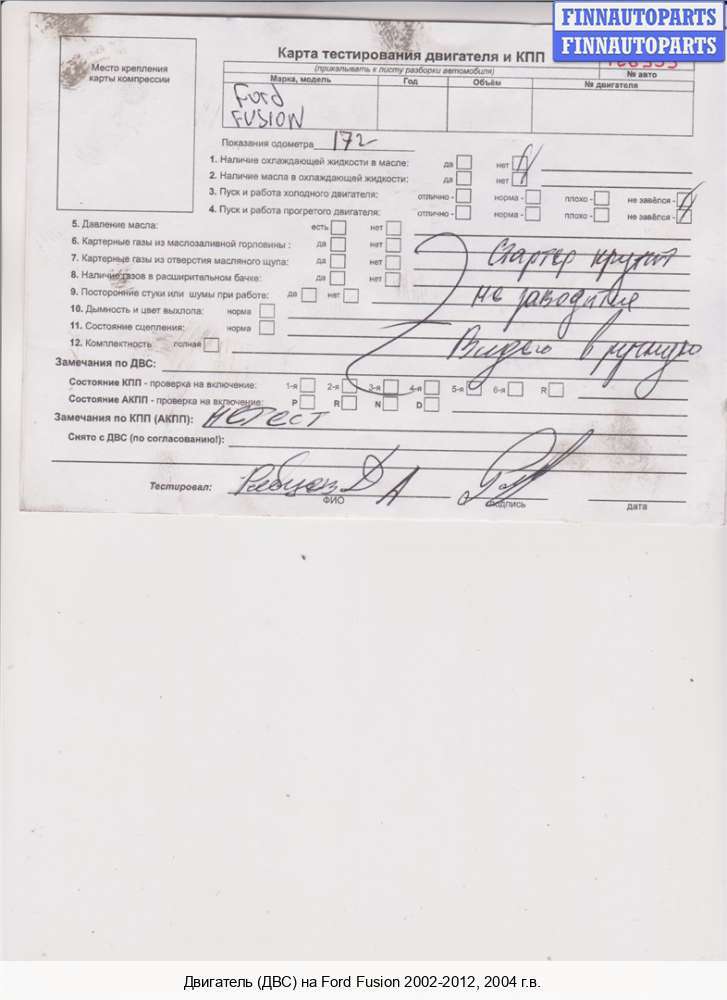 FINNAUTOPARTS
FINNAUTOPARTS
Карта тестирования двигателя и КПП
(прикалывать к листу разборки автомобиля)
№ авто
Место крепления
карты компрессии
Марка, модель Год Объём № двигателя
Ford
FUSION
Показания одометра 172
1. Наличие охлаждающей жидкости в масле: да нет
2. Наличие масла в охлаждающей жидкости: да нет
3. Пуск и работа холодного двигателя: отлично - норма - плохо - не завёлся -
4. Пуск и работа прогретого двигателя: отлично - норма - плохо - не завёлся -
5. Давление масла: есть нет
6. Картерные газы из маслозаливной горловины : да нет
7. Картерные газы из отверстия масляного щупа: да нет
8. Наличие газов в расширительном бачке: да нет
9. Посторонние стуки или шумы при работе: да нет
10. Дымность и цвет выхлопа: норма
11. Состояние сцепления: норма
12. Комплектность полная
Стартер крутит
не заводится
Видео вручную
Замечания по ДВС:
Состояние КПП - проверка на включение: 1-я 2-я 3-я 4-я 5-я 6-я R
Состояние АКПП - проверка на включение: P R N D
Замечания по КПП (АКПП): не тест
Снято с ДВС (по согласованию!):
Тестировал:
ФИО подпись дата
Двигатель (ДВС) на Ford Fusion 2002-2012, 2004 г.в.